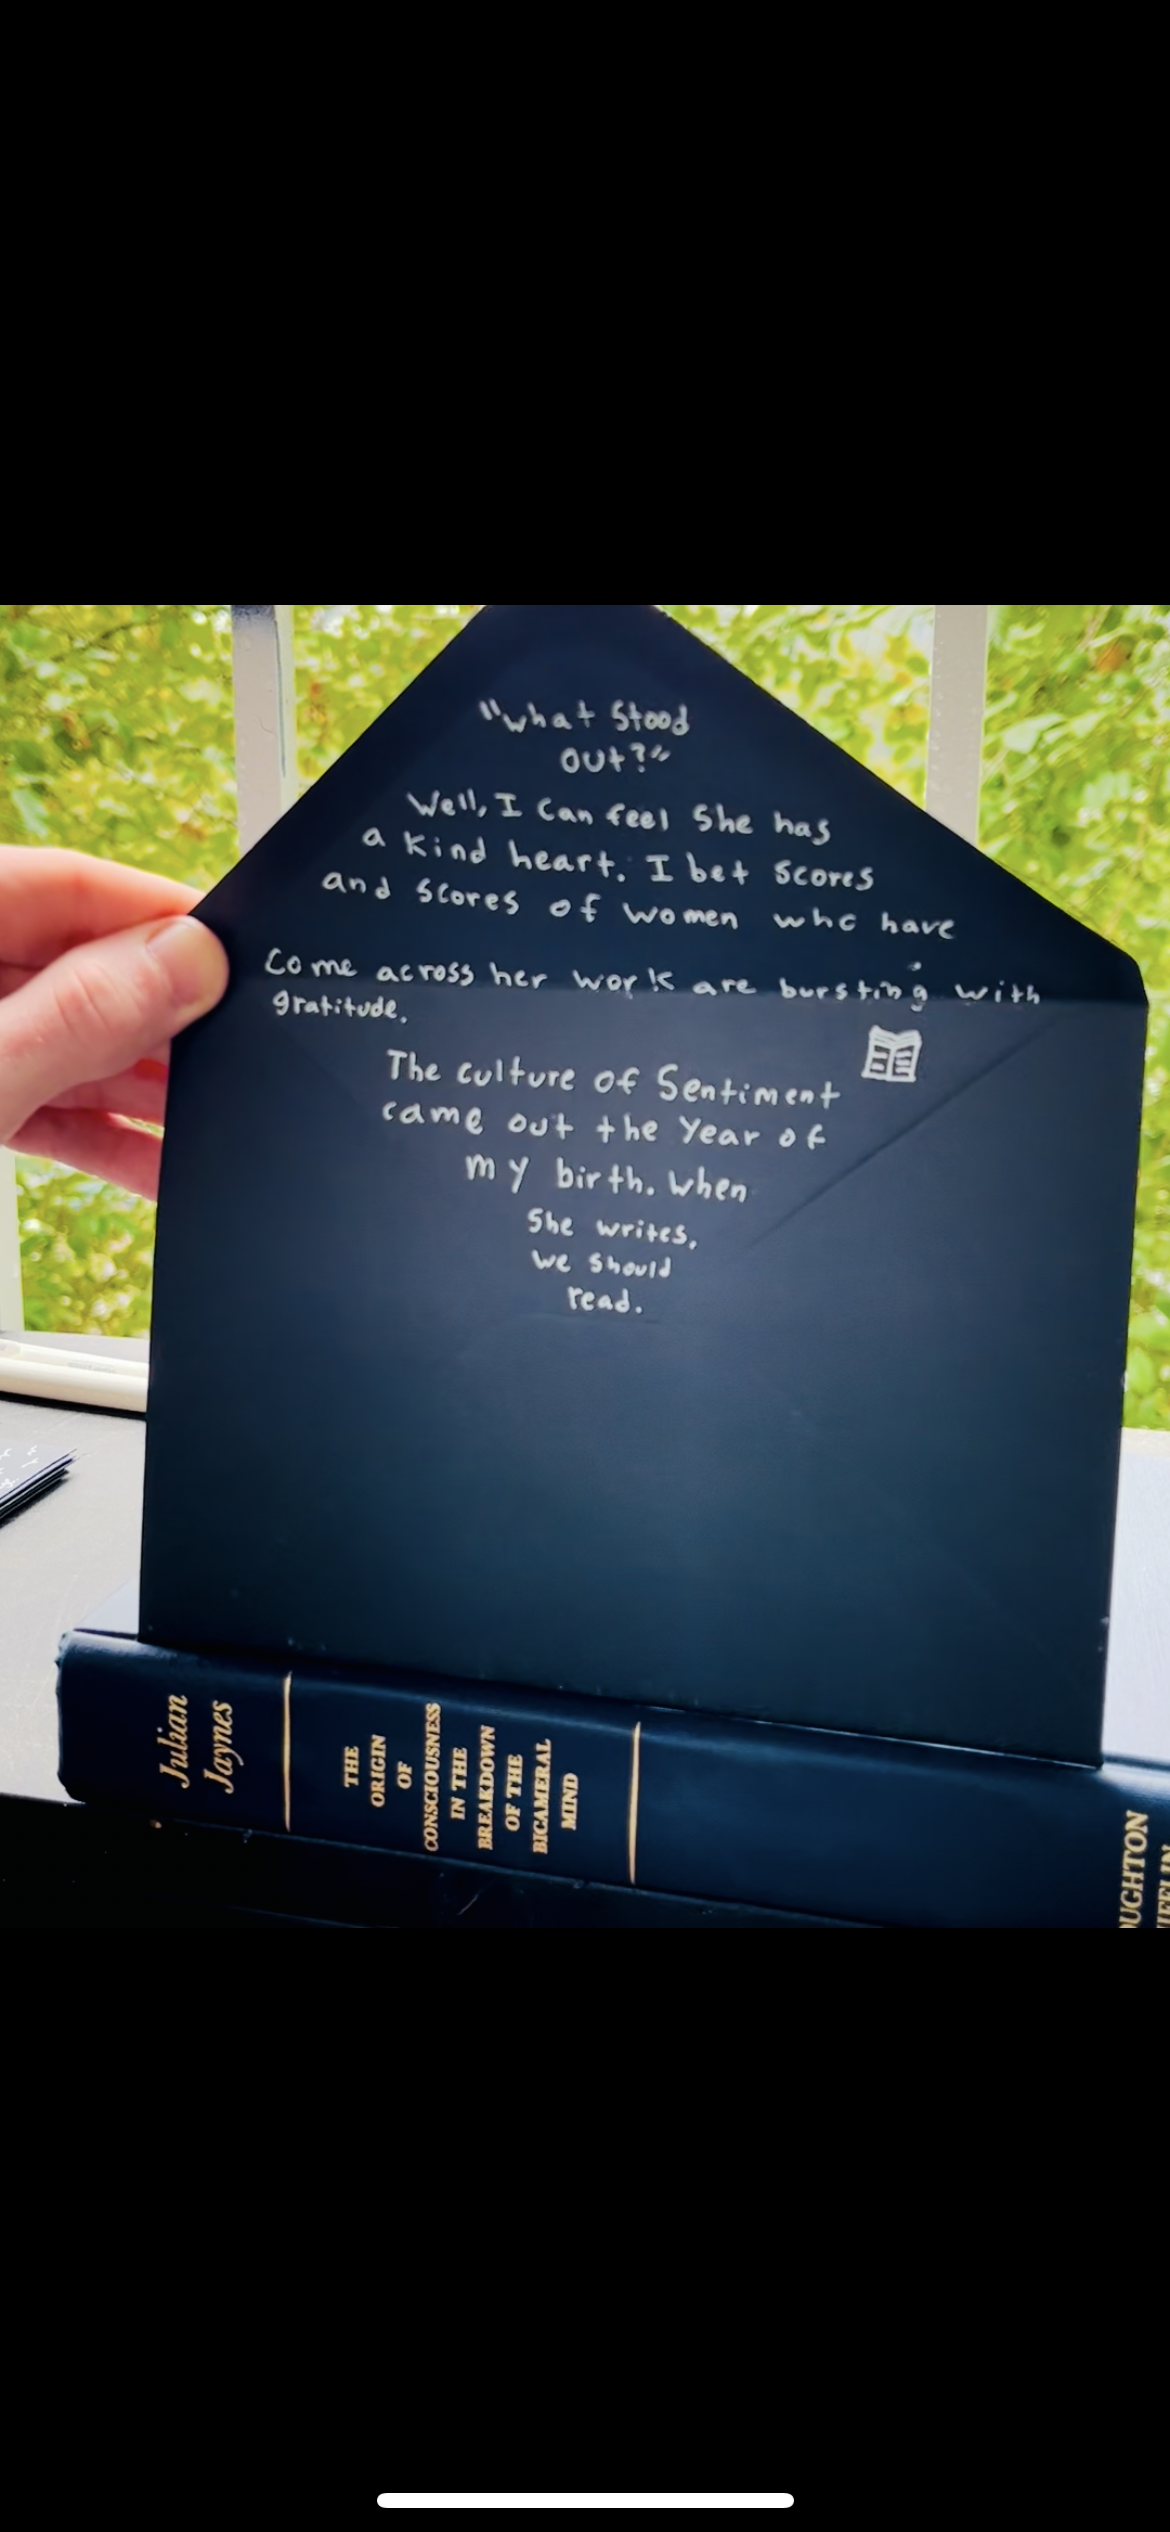 "What Stood
out?"
Well, I can feel She has
a kind heart. I bet scores
and scores of women who have
come across her work are bursting with
gratitude.
The culture of Sentiment
came out the year of
my birth. When
She writes,
we should
read.
Julian
Jaynes
THE
ORIGIN
OF
CONSCIOUSNESS
IN THE
BREAKDOWN
OF THE
BICAMERAL
MIND